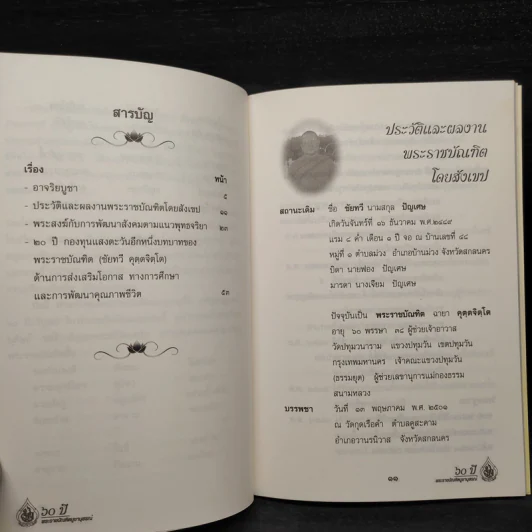 สารบัญ
เรื่อง หน้า
- อาจริยบูชา ๕
- ประวัติและผลงานพระราชบัณฑิตโดยสังเขป ๑๑
- พระสงฆ์กับการพัฒนาสังคมตามแนวพุทธจริยา ๒๓
- ๒๐ ปี กองทุนแสงตะวันอีกหนึ่งบทบาทของ
พระราชบัณฑิต (ชัยทวี คุตฺตจิตฺโต)
ด้านการส่งเสริมโอกาส ทางการศึกษา
และการพัฒนาคุณภาพชีวิต ๕๓
๖๐ ปี
ประวัติและผลงาน
พระราชบัณฑิต
โดยสังเขป
สถานะเดิม ชื่อ ชัยทวี นามสกุล ปัญเศษ
เกิดวันจันทร์ที่ ๑๖ ธันวาคม พ.ศ.๒๔๘๙
แรม ๘ ค่ำ เดือน ๑ ปี จอ ณ บ้านเลขที่ ๔๔
หมู่ที่ ๑ ตำบลม่วง อำเภอบ้านม่วง จังหวัดสกลนคร
บิดา นายฟอง ปัญเศษ
มารดา นางเจียม ปัญเศษ
ปัจจุบันเป็น พระราชบัณฑิต ฉายา คุตฺตจิตฺโต
อายุ ๖๐ พรรษา ๓๘ ผู้ช่วยเจ้าอาวาส
วัดปทุมวนาราม แขวงปทุมวัน เขตปทุมวัน
กรุงเทพมหานคร เจ้าคณะแขวงปทุมวัน
(ธรรมยุต) ผู้ช่วยเลขานุการแม่กองธรรม
สนามหลวง
บรรพชา วันที่ ๑๓ พฤษภาคม พ.ศ. ๒๕๐๑
ณ วัดกุดเรือคำ ตำบลคูสะคาม
อำเภอวานรนิวาส จังหวัดสกลนคร
๑๑
๖๐ ปี